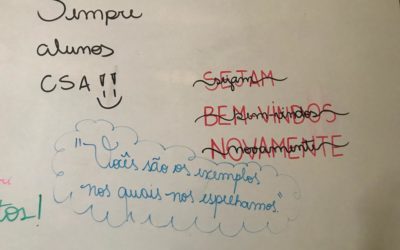 Sempre
alunos
CSA!!
SEJAM
sejam
BEM-VINDOS
bem vindos
NOVAMENTE
novamente
"Vocês são os exemplos
nos quais nos espelhamos."
tos!